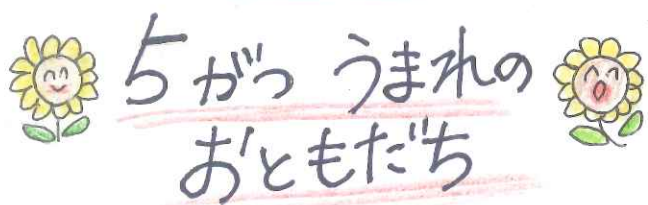 5がつ うまれの
おともだち